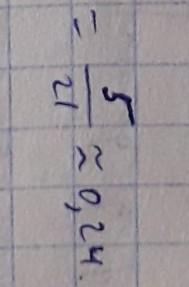 = 5/21 ≈ 0,24.